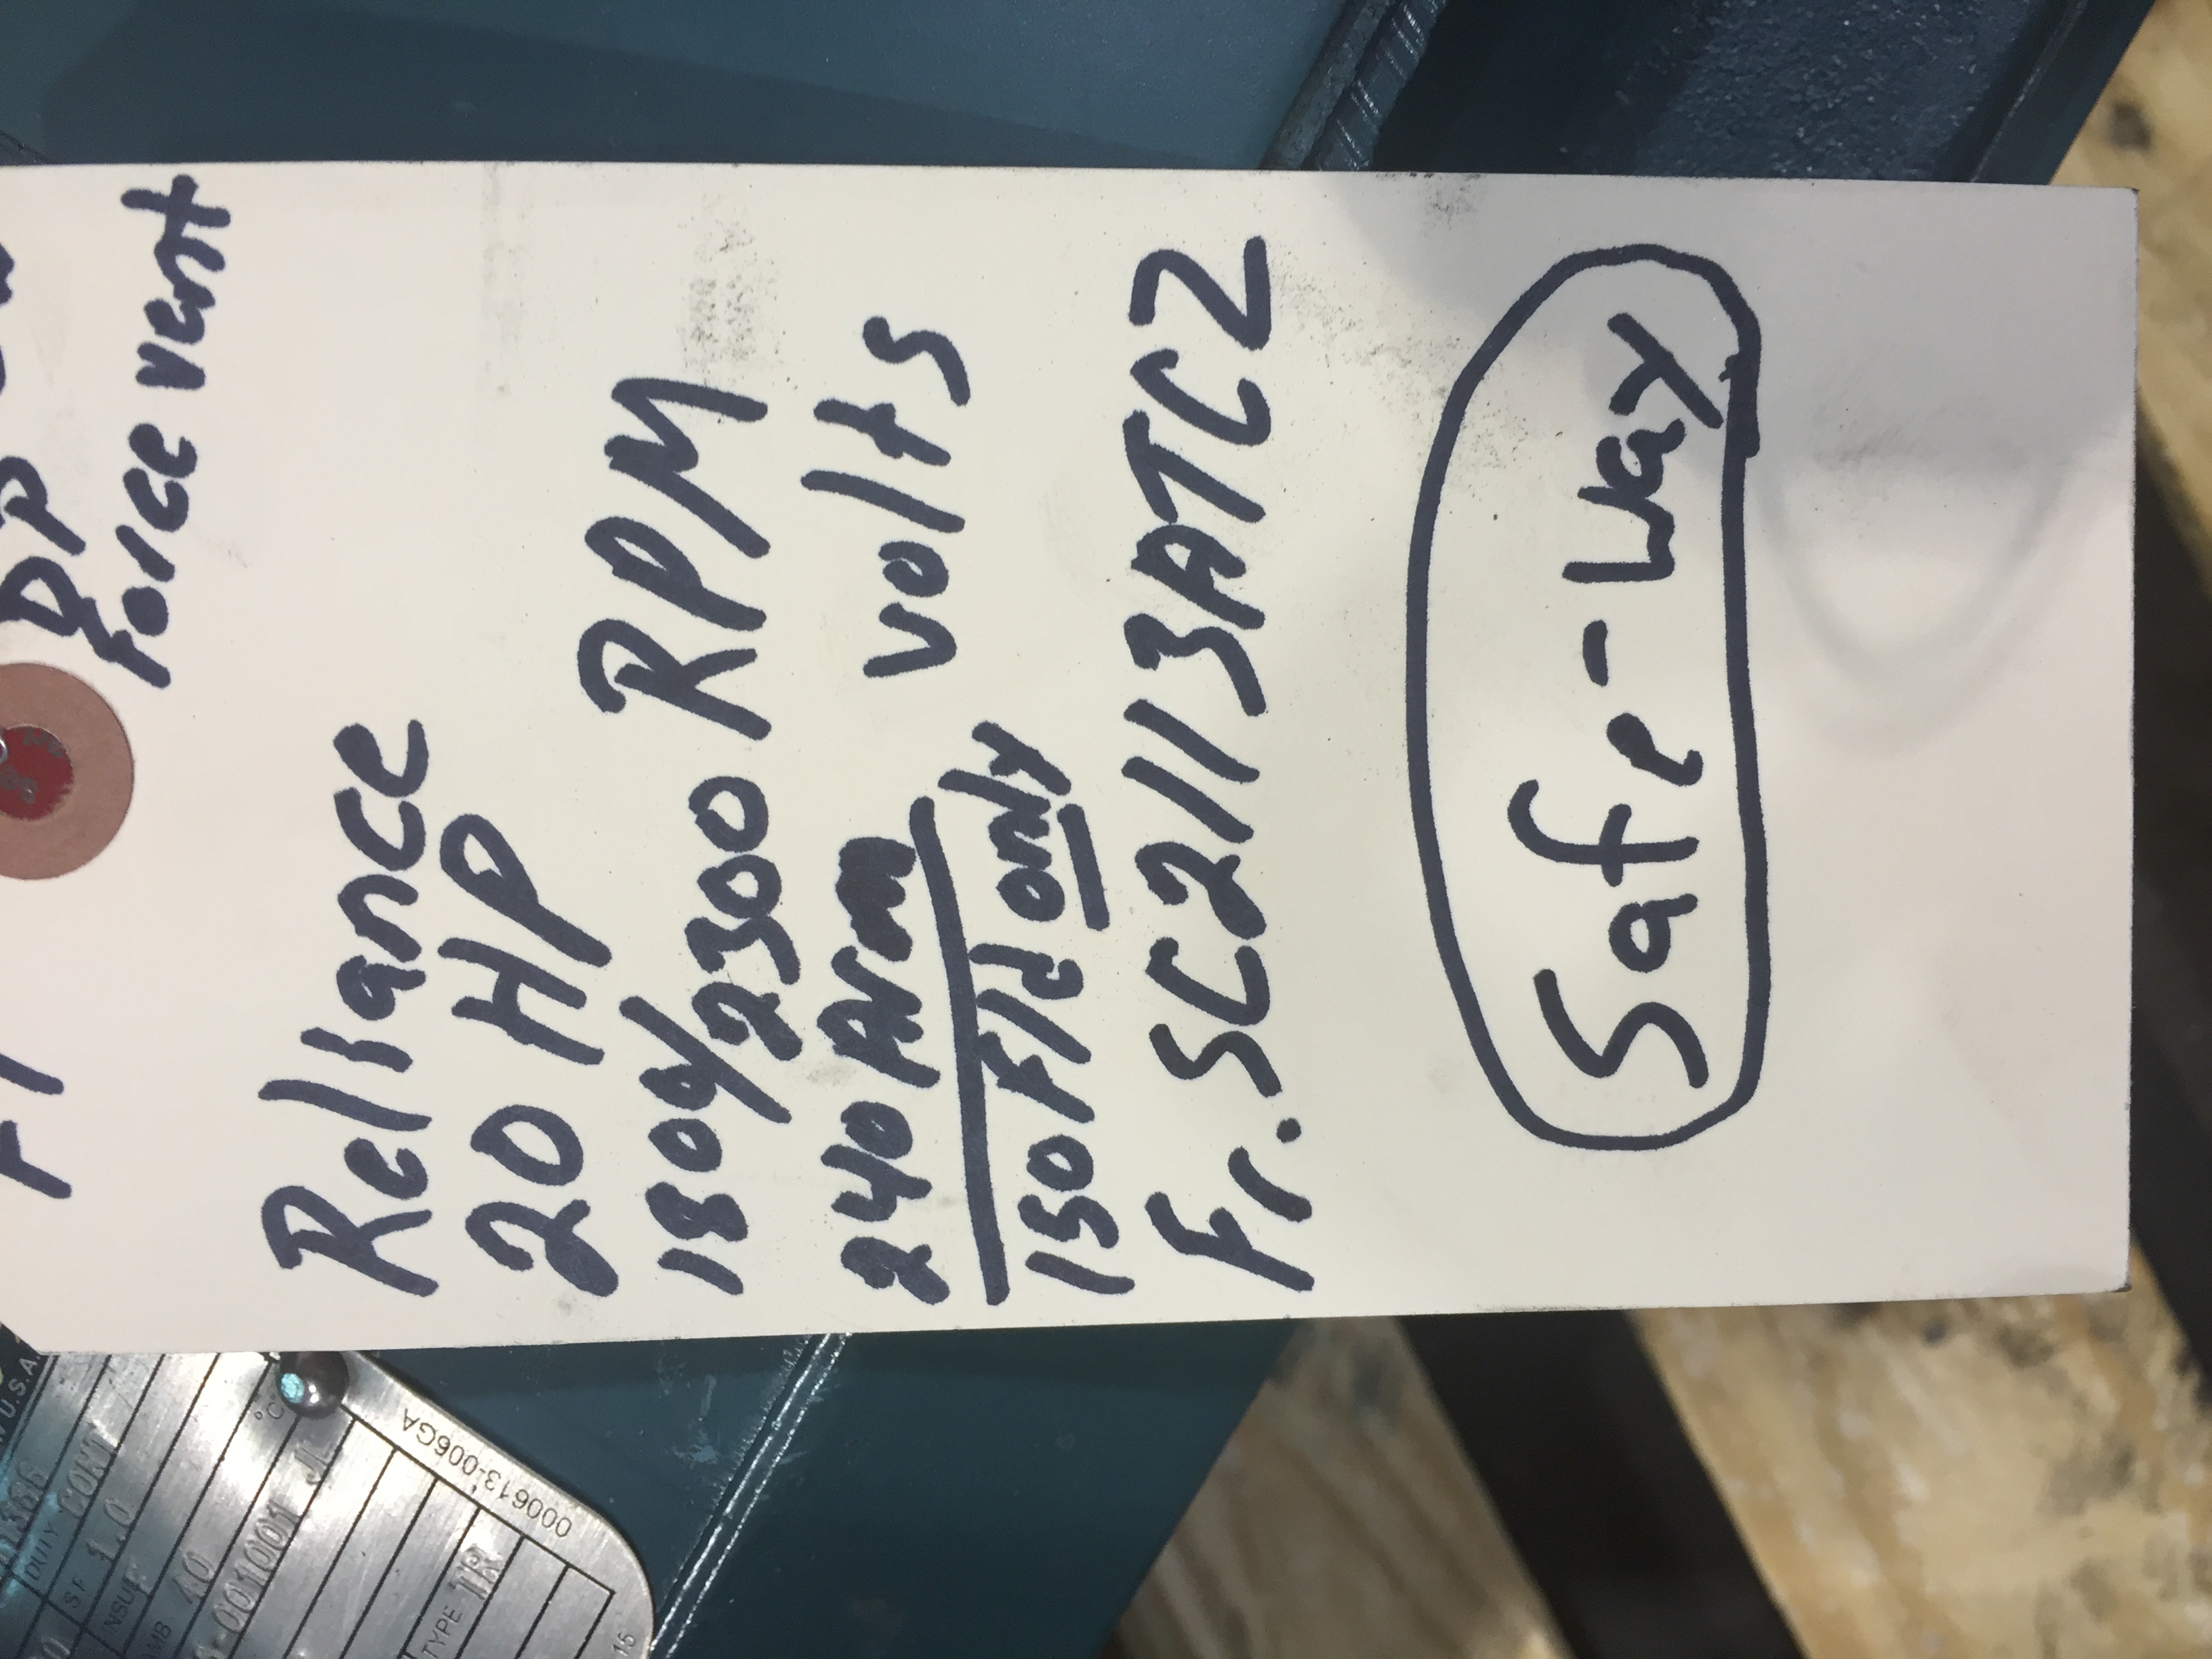 DP
Force vent
Reliance
20 HP
1809/2300 RPM
240 Arm volts
150 Fld only
Fr. SC2113ATCZ
Safe-Way
U.S.A.
DUTY CONT
SF 1.0
INSUL F
AMB 40
°C
TYPE TR
000613-006GA